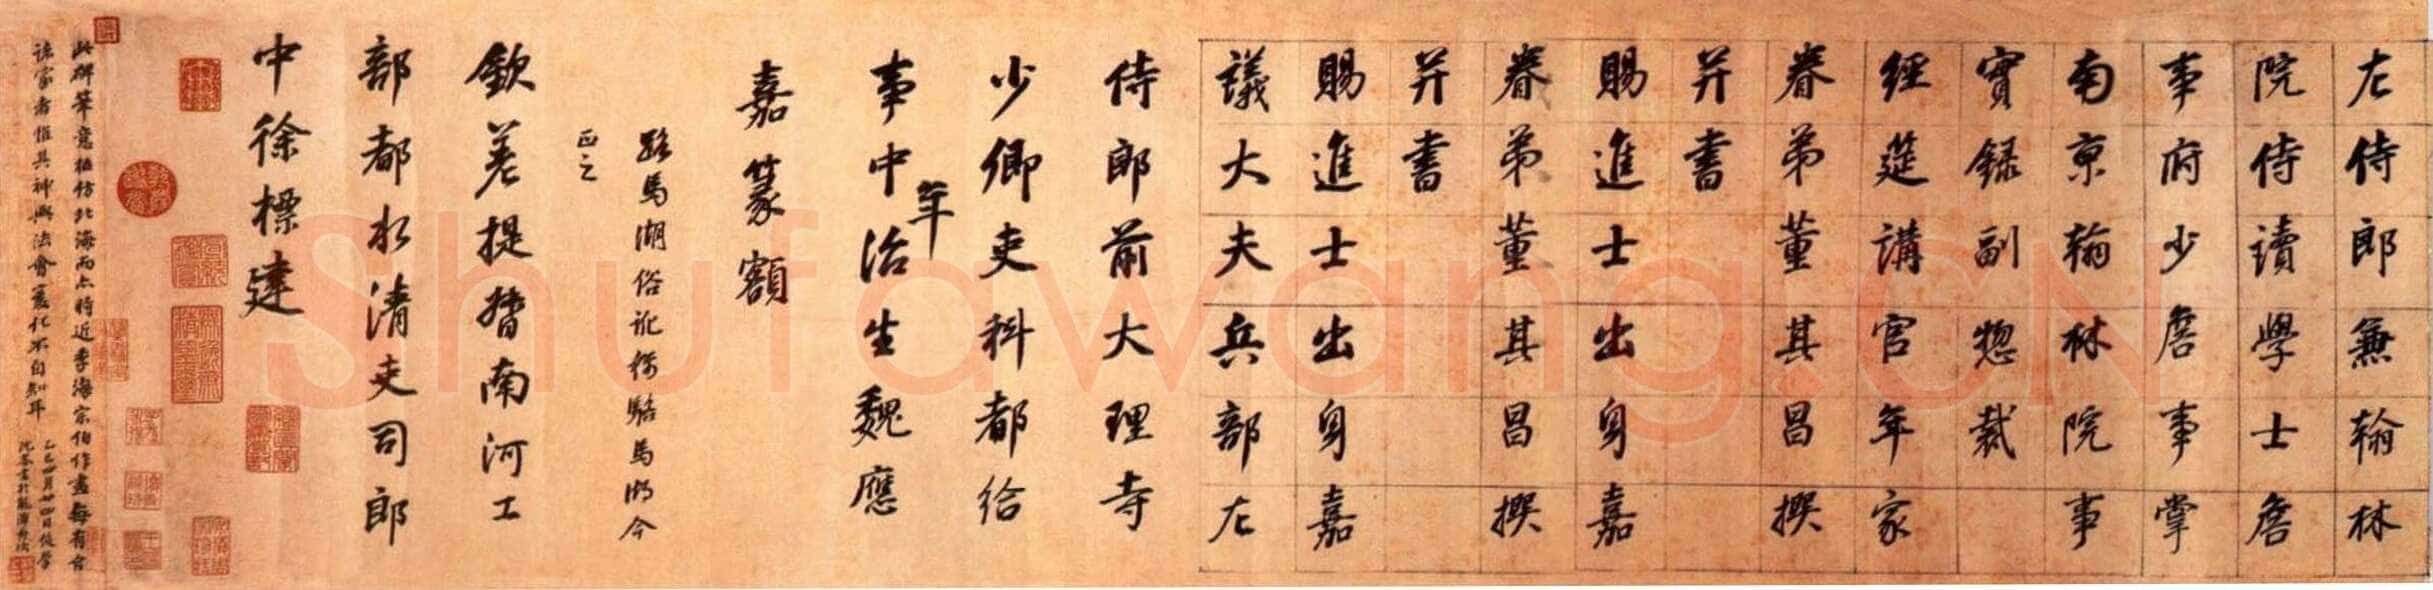 左侍郎兼翰林
院侍讀學士詹
事府少詹事掌
南京翰林院事
實録副總裁
經筵講官年家
眷弟董其昌撰
并書
賜進士出身嘉
眷弟董其昌撰
并書
賜進士出身嘉
議大夫兵部左
侍郎前大理寺
少卿吏科都給
事中治年生魏應
嘉篆額
路馬湖俗訛称駱馬湖今
正之
欽差提督南河工
部都水清吏司郎
中徐標建
此碑筆意極仿北海而亦時近李海宗伯作書每有合
諸家者惟其神與法會變化不自知耳
乙巳四月廿四日後學
Shufawang.CN